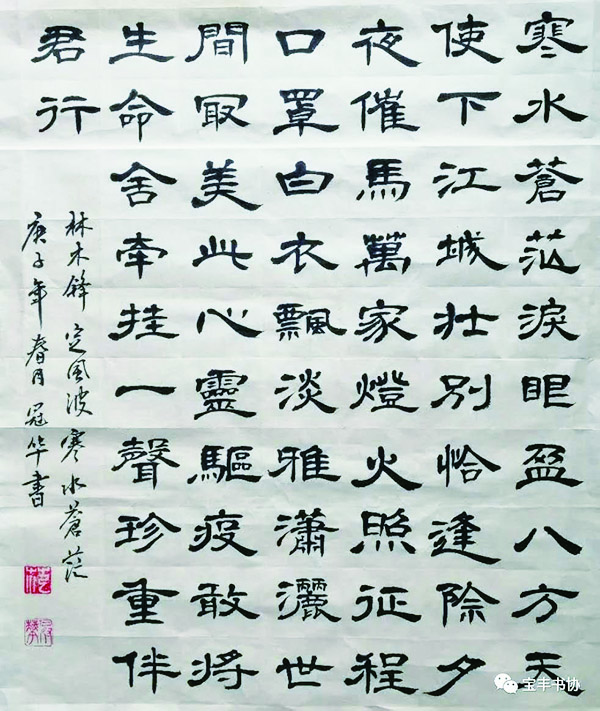 寒水蒼茫淚眼盈八方天
使下江城壯别恰逢除夕
夜催馬萬家燈火照征程
口罩白衣飄淡雅瀟灑世
間冣美此心靈驅疫敢將
生命舍牵挂一聲珍重伴
君行
林木鋒 定風波 寒水蒼茫
庚子年春月 冠华書
宝丰书协